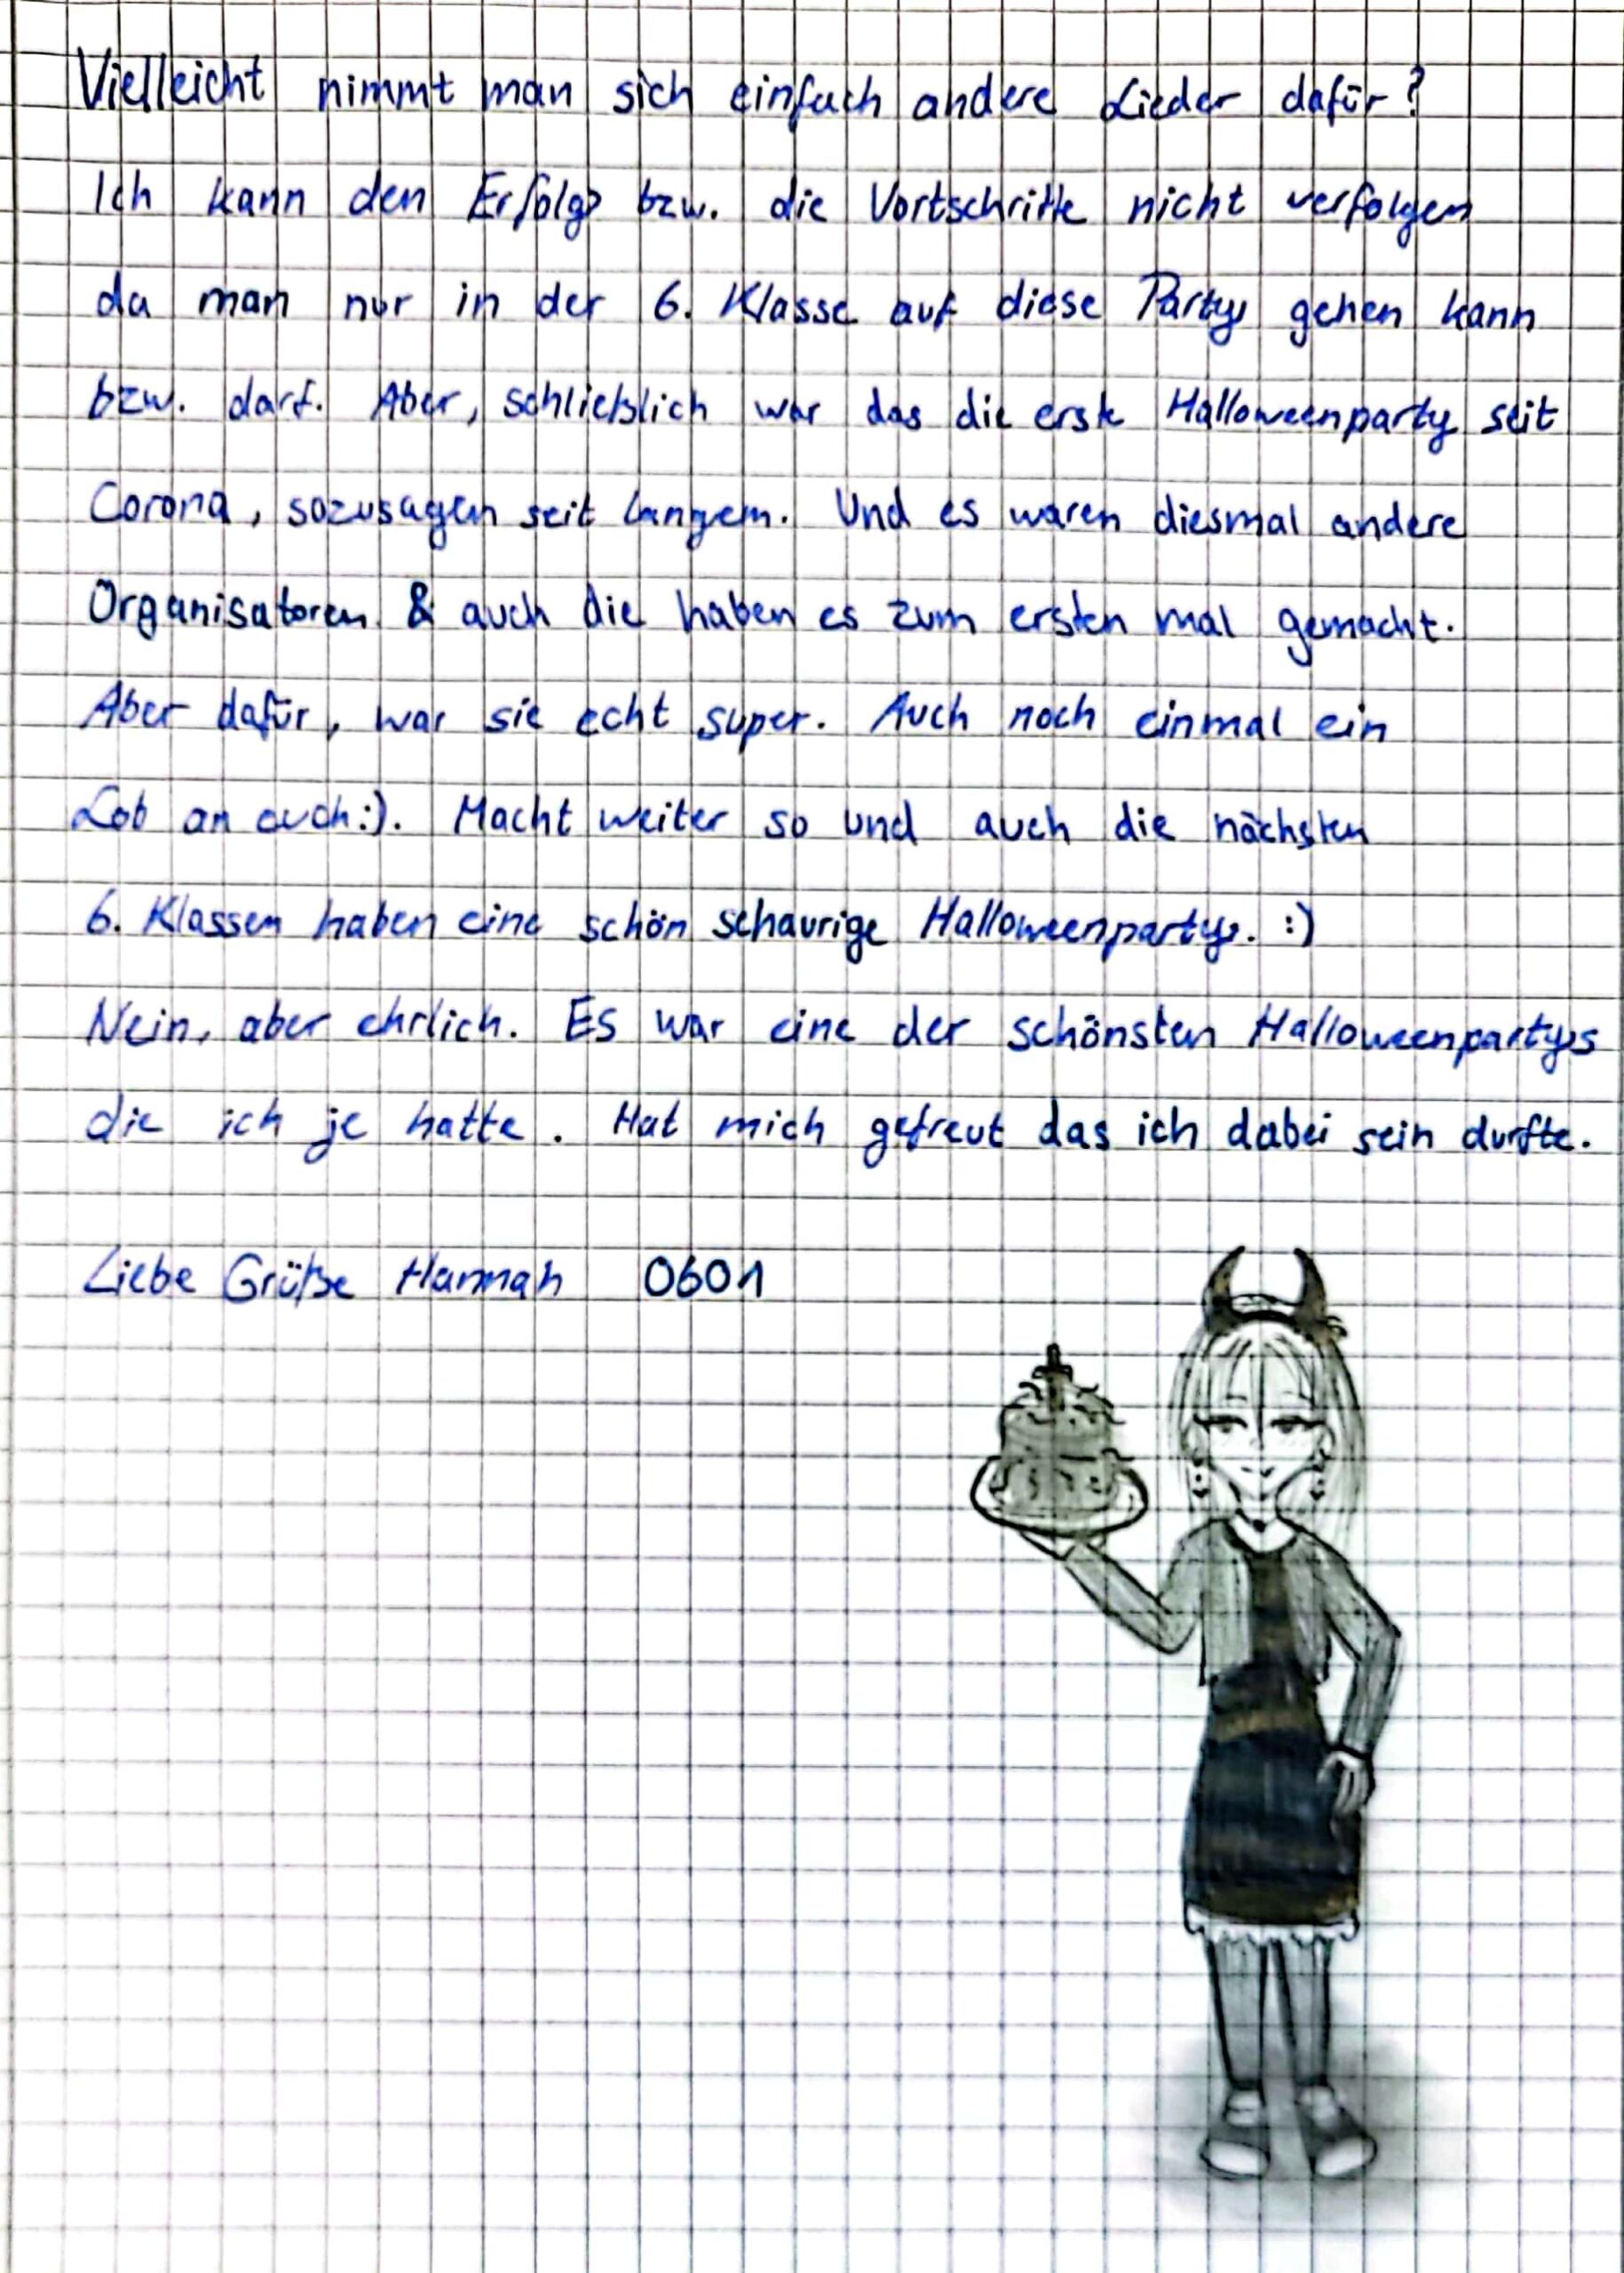 Vielleicht nimmt man sich einfach andere Lieder dafür?
Ich kann den Erfolg bzw. die Vortschritte nicht verfolgen
da man nur in der 6. Klasse auf diese Party gehen kann
bzw. darf. Aber, schließlich war das die erste Halloweenparty seit
Corona, sozusagen seit langem. Und es waren diesmal andere
Organisatoren & auch die haben es zum ersten mal gemacht.
Aber dafür, war sie echt super. Auch noch einmal ein
Lob an euch:). Macht weiter so und auch die nächsten
6. Klassen haben eine schön schaurige Halloweenparty. :)
Nein, aber ehrlich. Es war eine der schönsten Halloweenpartys
die ich je hatte. Hat mich gefreut das ich dabei sein durfte.
Liebe Grüße Hannah 0601